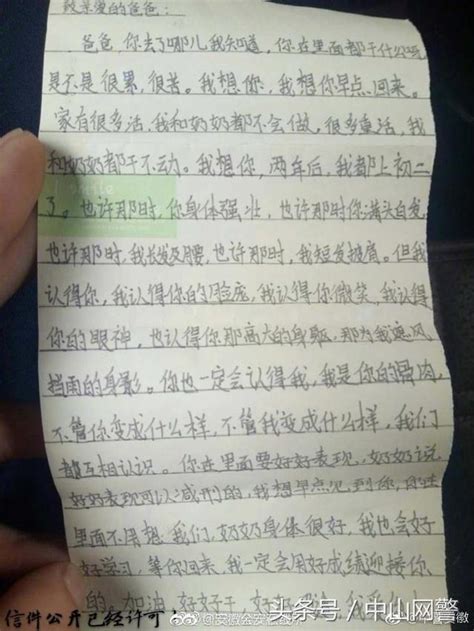 致亲爱的爸爸：
爸爸，你去了哪儿我知道，你在里面都干什么呢
是不是很累，很苦。我想你，我想你早点回来。
家有很多活，我和奶奶都不会做。很多重活，我
和奶奶都干不动。我想你，两年后，我都上初二
了。也许那时，你身体强壮，也许那时你满头白发
也许那时，我长发及腰，也许那时，我短发披肩。但我
认得你，我认得你的脸庞，我认得你微笑，我认得
你的眼神，也认得你那高大的身躯，那为我遮风
挡雨的身影。你也一定会认得我，我是你的骨肉，
不管你变成什么样，不管我变成什么样，我们
都互相认识。你在里面要好好表现，奶奶说
好好表现可以减刑的，我想早点见到你，
里面不用想我们，奶奶身体很好，我也会好
好学习，等你回来，我一定会用好成绩迎接你
的。加油
信件公开已经许可
头条号/中山网警